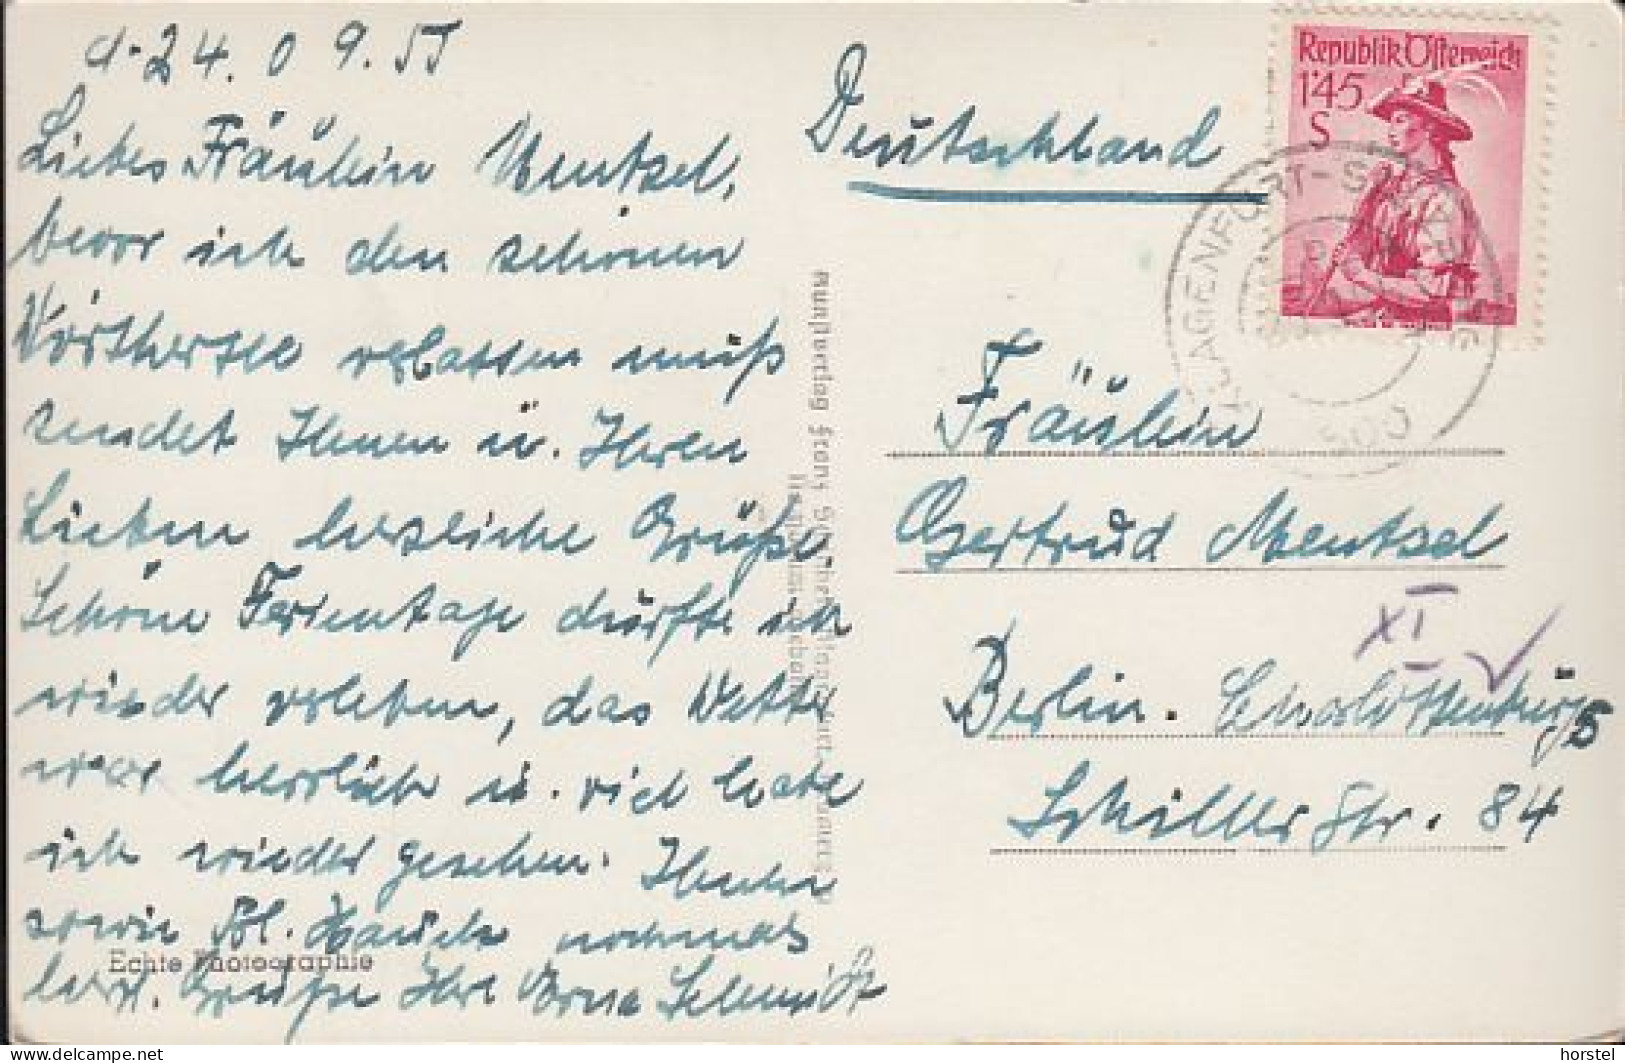 d. 24. 0 9. 55
Liebes Fräulein Mentzel,
bevor ich den schönen
Wörthersee verlassen muß
sendet Ihnen u. Ihren
Lieben herzliche Grüße.
Schöne Ferientage durfte ich
wieder erleben, das Wetter
war herrlich u. viel habe
ich wieder gesehen. Ihnen
sowie Frl. nochmals
herzl. Grüße Ihre Erna Schmidt
Echte Photographie
Deutschland
Republik Österreich
1'45
S
KLAGENFURT
Fräulein
Gertrud Mentzel
XI
Berlin. Charlottenburg 5
Schiller Str. 84
www.delcampe.net
horstel